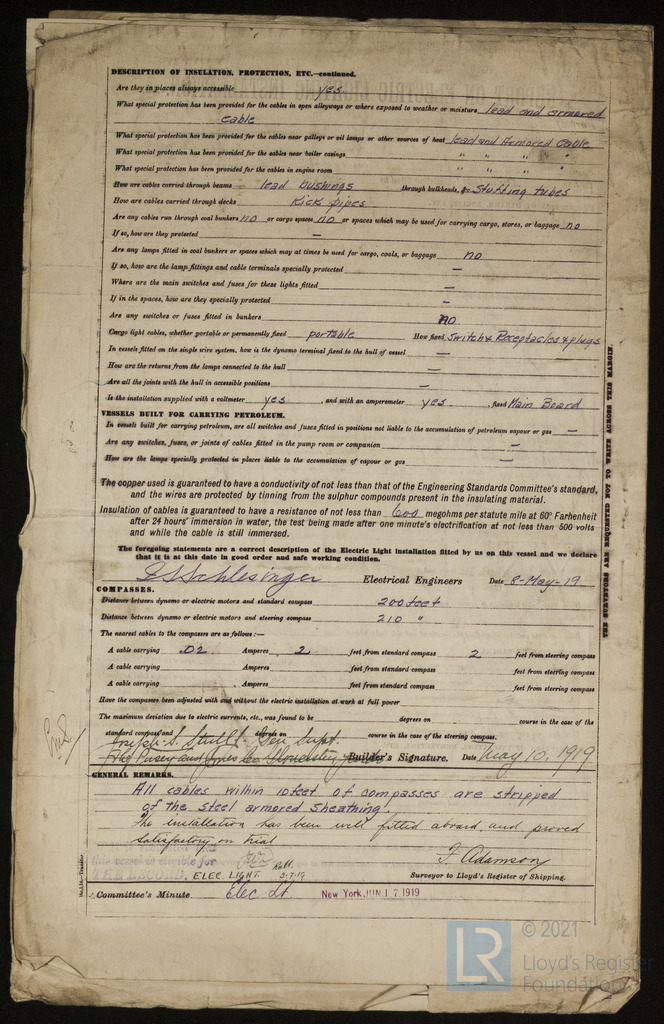 DESCRIPTION OF INSULATION, PROTECTION, ETC.—continued.
Are they in places always accessible yes
What special protection has been provided for the cables in open alleyways or where exposed to weather or moisture lead and armored
cable
What special protection has been provided for the cables near galleys or oil lamps or other sources of heat lead and Armored Cable
What special protection has been provided for the cables near boiler casings " " " "
What special protection has been provided for the cables in engine room " " " "
How are cables carried through beams lead bushings through bulkheads, &c. Stuffing tubes
How are cables carried through decks Kick pipes
Are any cables run through coal bunkers no or cargo spaces no or spaces which may be used for carrying cargo, stores, or baggage no
If so, how are they protected —
Are any lamps fitted in coal bunkers or spaces which may at times be used for cargo, coals, or baggage no
If so, how are the lamp fittings and cable terminals specially protected —
Where are the main switches and fuses for these lights fitted —
If in the spaces, how are they specially protected —
Are any switches or fuses fitted in bunkers no
Cargo light cables, whether portable or permanently fixed portable How fixed Switch & Receptacles & plugs
In vessels fitted on the single wire system, how is the dynamo terminal fixed to the hull of vessel —
How are the returns from the lamps connected to the hull —
Are all the joints with the hull in accessible positions —
Is the installation supplied with a voltmeter yes, and with an amperemeter yes, fixed Main Board
VESSELS BUILT FOR CARRYING PETROLEUM.
In vessels built for carrying petroleum, are all switches and fuses fitted in positions not liable to the accumulation of petroleum vapour or gas —
Are any switches, fuses, or joints of cables fitted in the pump room or companion —
How are the lamps specially protected in places liable to the accumulation of vapour or gas —
The copper used is guaranteed to have a conductivity of not less than that of the Engineering Standards Committee's standard,
and the wires are protected by tinning from the sulphur compounds present in the insulating material.
Insulation of cables is guaranteed to have a resistance of not less than 600 megohms per statute mile at 60° Farhenheit
after 24 hours' immersion in water, the test being made after one minute's electrification at not less than 500 volts
and while the cable is still immersed.
The foregoing statements are a correct description of the Electric Light installation fitted by us on this vessel and we declare
that it is at this date in good order and safe working condition.
Schlesinger Electrical Engineers Date 8-May-19
COMPASSES.
Distance between dynamo or electric motors and standard compass 200 feet
Distance between dynamo or electric motors and steering compass 210 "
The nearest cables to the compasses are as follows:—
A cable carrying .02 Amperes 2 feet from standard compass 2 feet from steering compass
A cable carrying Amperes feet from standard compass feet from steering compass
A cable carrying Amperes feet from standard compass feet from steering compass
Have the compasses been adjusted with and without the electric installation at work at full power
The maximum deviation due to electric currents, etc., was found to be degrees on course in the case of the
standard compass and degrees on course in the case of the steering compass.
Joseph S. Gen Supt.
Pusey and Jones Co Gloucester Builder's Signature. Date May 10, 1919
GENERAL REMARKS.
All cables within 10 feet of compasses are stripped
of the steel armored sheathing.
The installation has been well fitted aboard and proved
satisfactory on trial
this vessel is eligible for
THE RECORD. ELEC. LIGHT. 3.7.19
F. Adamson
Surveyor to Lloyd's Register of Shipping.
Committee's Minute Elec Lt New York JUN 17 1919
THE SURVEYORS ARE REQUESTED NOT TO WRITE ACROSS THIS MARGIN.
LR
© 2021
Lloyd's Register
Foundation